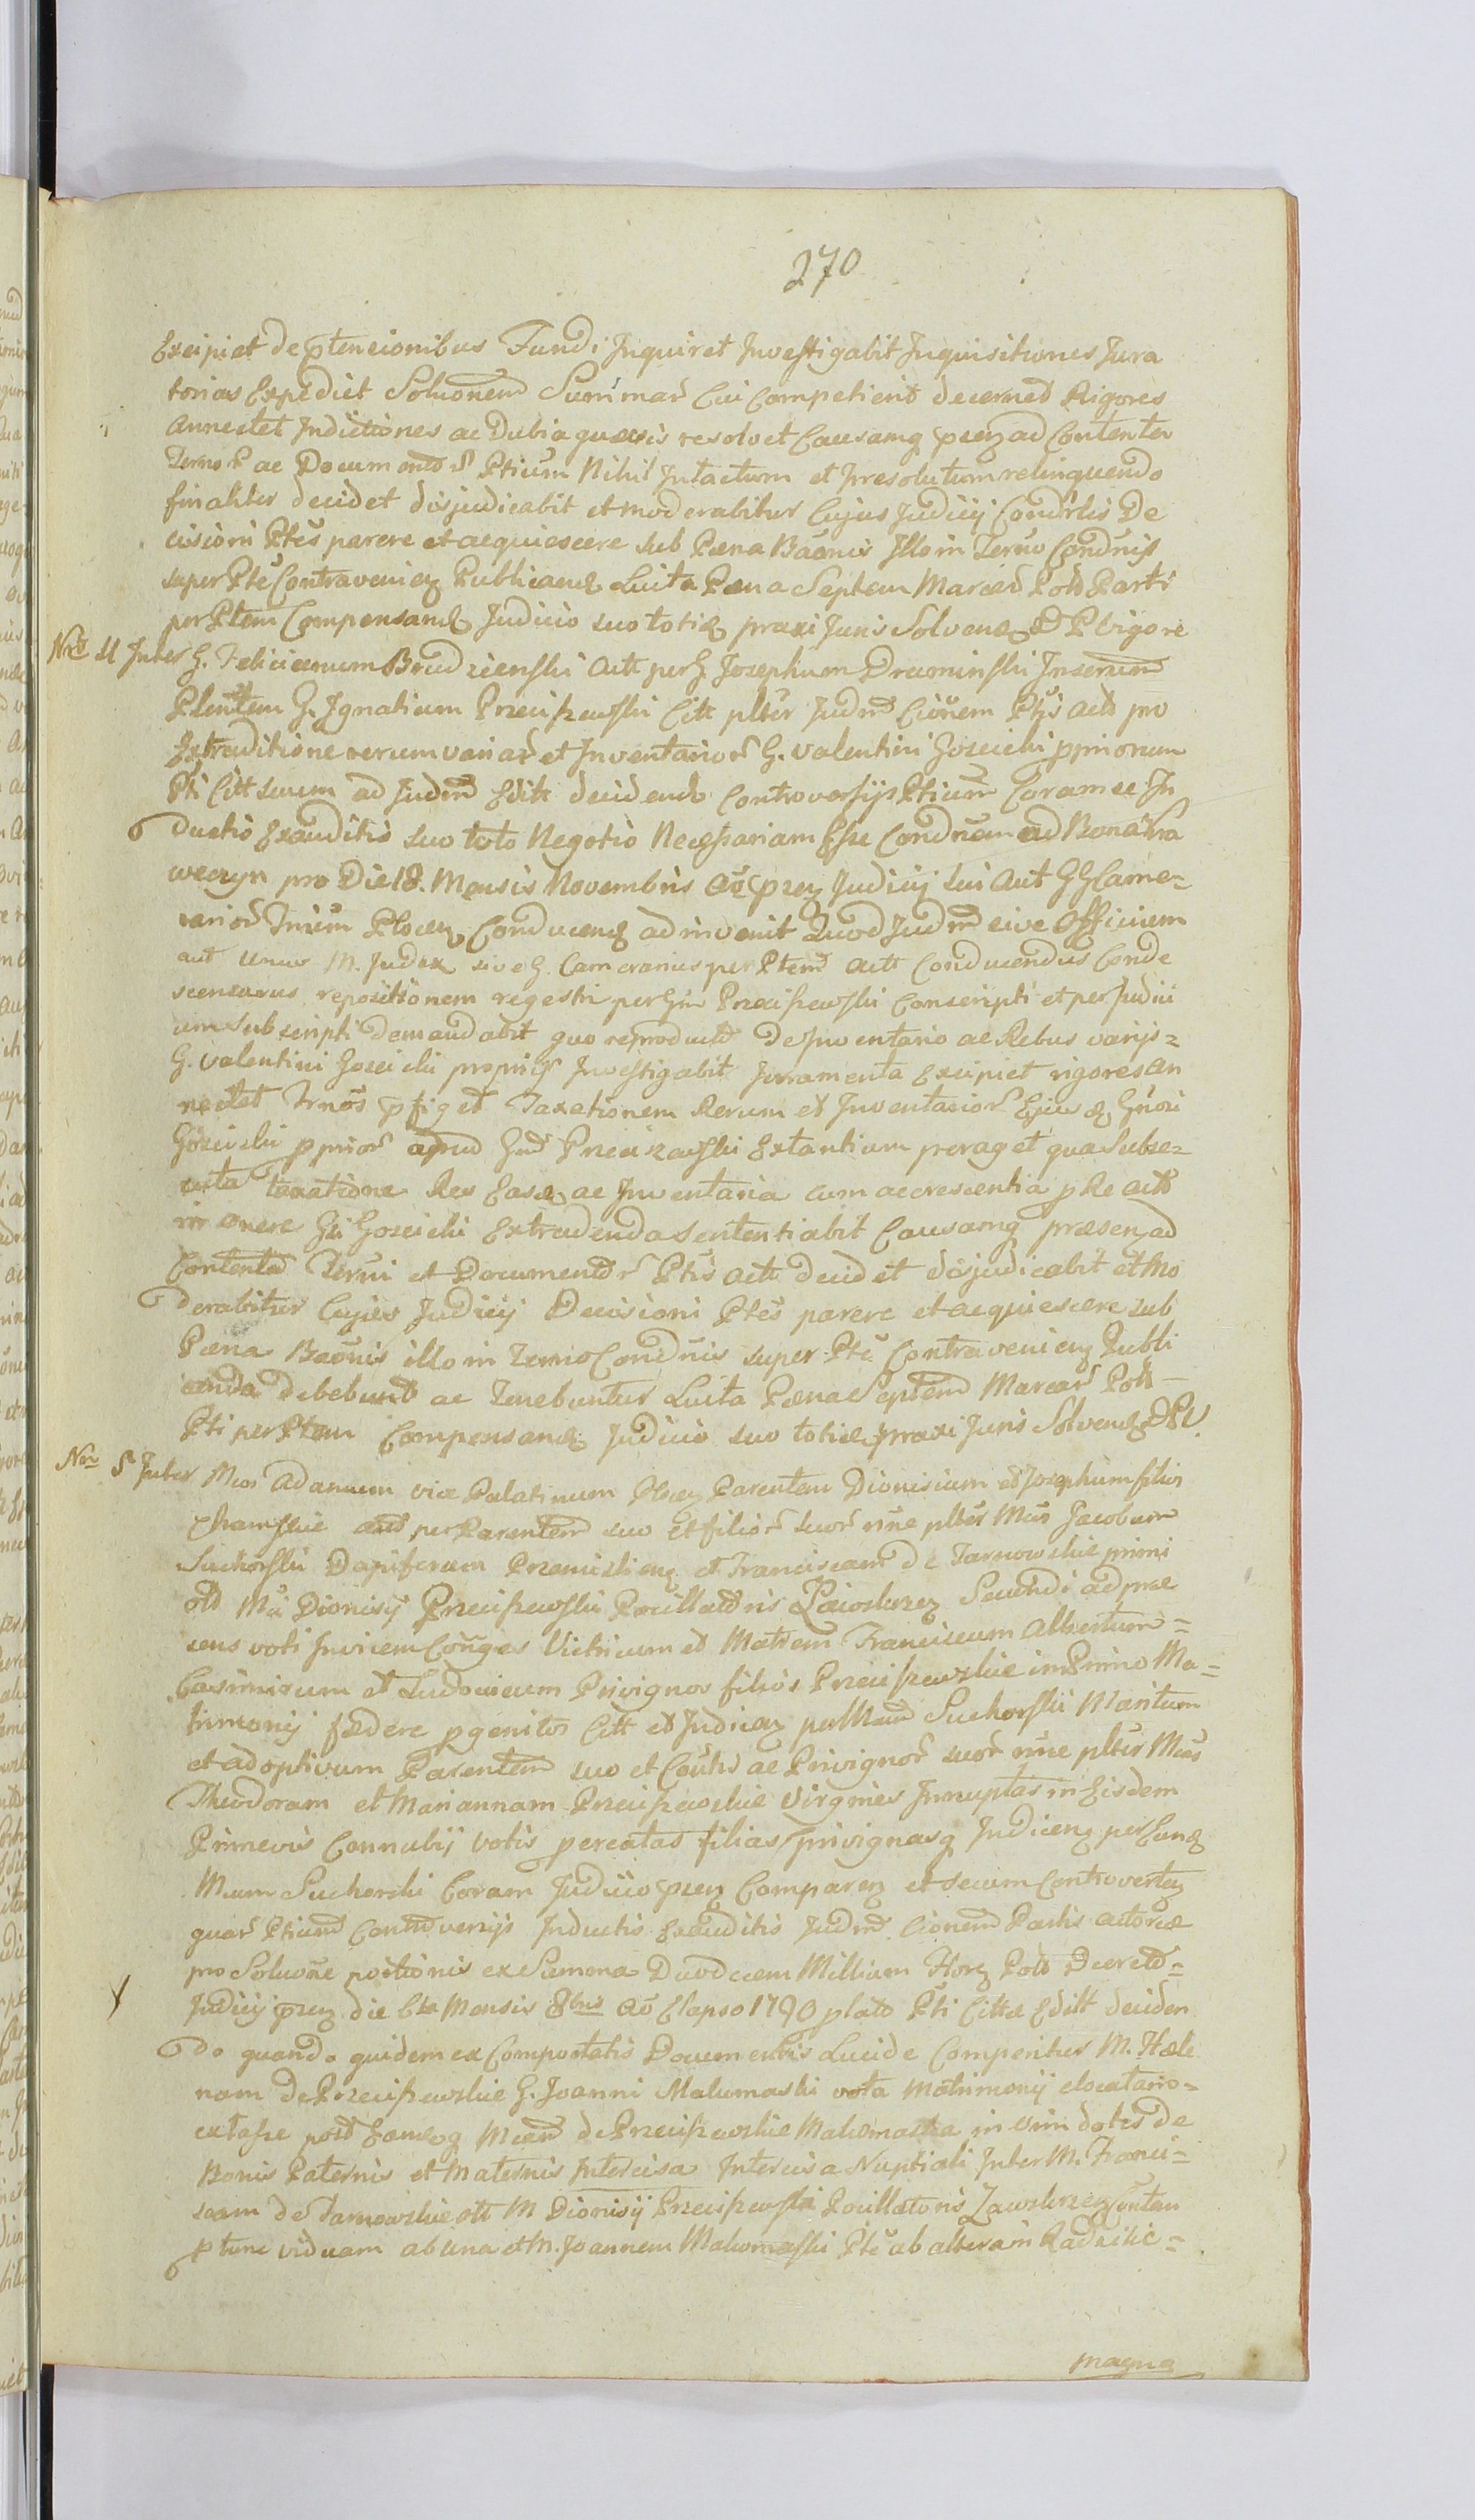 270
Excipiet de ptensionibus Fundi Inquiret Investigabit Inquisitiones Jura
torias Expediet Solutionem Summar Cui Competierit decernet Rigores
Annectet Indictiones ac Dubia quaevis resolvet Causamq prenz ad Contenta
Termor ac Documentor Ptium Nihil Intactum et Irresolutum relinquendo
finaliter decidet disjudicabit et moderabitur Cujus Judicij Condrlis De
cisioni Ptes parere et acquiescere sub Paena Baonis Illo in Termo Condnis
super Pte Contravenienz Publicand Luita Paena Septem Marcar Polo Parti
per Ptem Compensand Judicio suo toties praxi Juris Solvend D P Vigore
Nro 4 Inter G. Felicianum Brudzienski Actt per G. Josephum Drwominski Inserum
Plentem G. Ignatium Przeciszewski Citt plter Judm Cionem Ptis Acto pro
Extraditione rerum variar et Inventarior G. Valentini Gozcicki ppriorum
Pti Citt suum ad Judm Edita decidendo Controversijs Ptium Coram se In
ductis Exauditis suo toto Negotio Necessariam Esse Condnem ad Bona
weczyn pro Die 18. Mensis Novembris Ao prenz Judicij sui Aut GG Came=
rarior Trium Plocenz Conducend adinvenit Quod Judm sive Officium
aut Unus M. Judex sive G. Camerarius per Ptem Actt Conducendus Conde
scensurus repositionem regestri per Gm Przeciszewski Conscripti et per Judici
um subscripti demandabit quo reproducto De Inventario ac Rebus varijs=
G. Valentini Gozcicki proprijs Investigabit Juramenta Excipiet rigores an
nectet Trnos pfiget Taxationem Rerum et Inventarior Ejusd Gnosi
Gozcicki pprior apud Gm Przeciszewski Extantium peraget qua Subse=
cuta taxatione Res Easd ac Inventaria cum accrescentia p Re Acto
in onere Gsi Gozcicki Extradenda Sententiabit Causamq praesenz ad
Contenta Termi et Documentor Ptis Actt decidet disjudicabit et Mo
derabitur Cujus Judicij Decisioni Ptes parere et acquiescere sub
Paena Baonis illo in Termo Condnis super Pte Contravenienz Publi
canda debebunt ac Tenebuntur Luita Paena Septem Marcar Polo
Pti per Ptem Compensand Judicio suo toties praxi Juris Solvend DPV.
Nro 5 Inter Mcos Adamum vice Palatinum Plocenz Parentem Dionisium et Josephum filios
Chamskie Actt per Parentem suo et filior suor nne plter Mcus Jacobum
Suchorski Dapiferum Przemislienz et Franciscam de Tarnowskie primi
olo Mci Dionisij Przeciszewski Pocillatoris Zawskrzenz Secundi ad prae
sens voti Invicem Conges Vitricum et Matrem Franciscum Albertum=
Casimirum et Ludovicum Privignos filios Przeciszewskie in Primo Ma=
trimonij faedere pgenitos Citt et Judicaz per Mcum Suchorski Maritum
et adoptivum Parentem suo et Conths ac Privignor suor nne plter Mcas
Theodoram et Mariannam Przeciszewskie Virgines Innuptas in Eisdem
Primevis Connubij votis pcreatas filias privignasq Judicenz per Eund
Mcum Suchorski Coram Judicio prenz Comparenz et secum Controvertenz
quar Ptium Controversijs Inductis Exauditis Judm Cionem Partis Actorae
pro Solutione portionis ex Summa Duodecem Millium Florz Polo Decreto=
Judicij prenz die 6ta Mensis 8bris Ao Elapso 1790 plato Pti Cittae Editt deciden
do quando quidem ex Comportatis Documentis Lucide Comperitur M. Hele
nam de Przeciszewskie G. Joanni Malumaski vota Matrimonij elocatario=
extasse post Eamq Mcam de Przeciszewskie Malomaska in vim dotis de
Bonis Paternis et Maternis Intercisa Intercisa Nuptiali Inter M. Franci=
scam de Tarnowskie olt M Dionisij Przeciszewski Pocillatoris Zawskrzenz Contem
p tunc viduam ab Una et M. Joannem Malomaski Pte ab altera in Radzikie=
magna